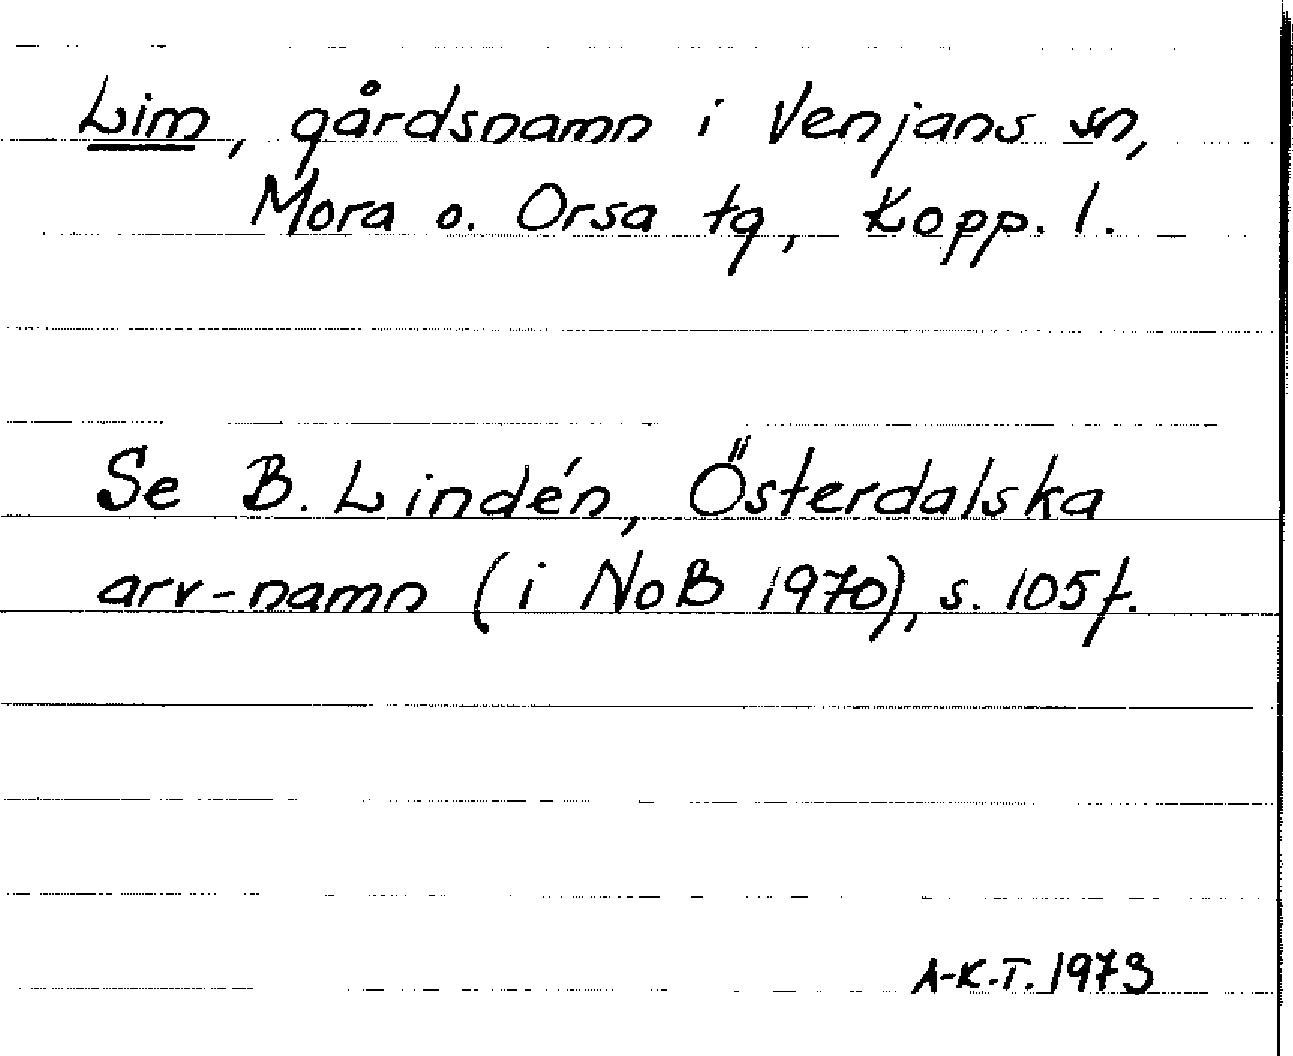 Lim, gårdsnamn i Venjans sn,
Mora o. Orsa tg, Kopp. l.
Se B. Lindén, Österdalska
arv-namn (i NoB 1970), s. 105f.
A-K.T. 1973